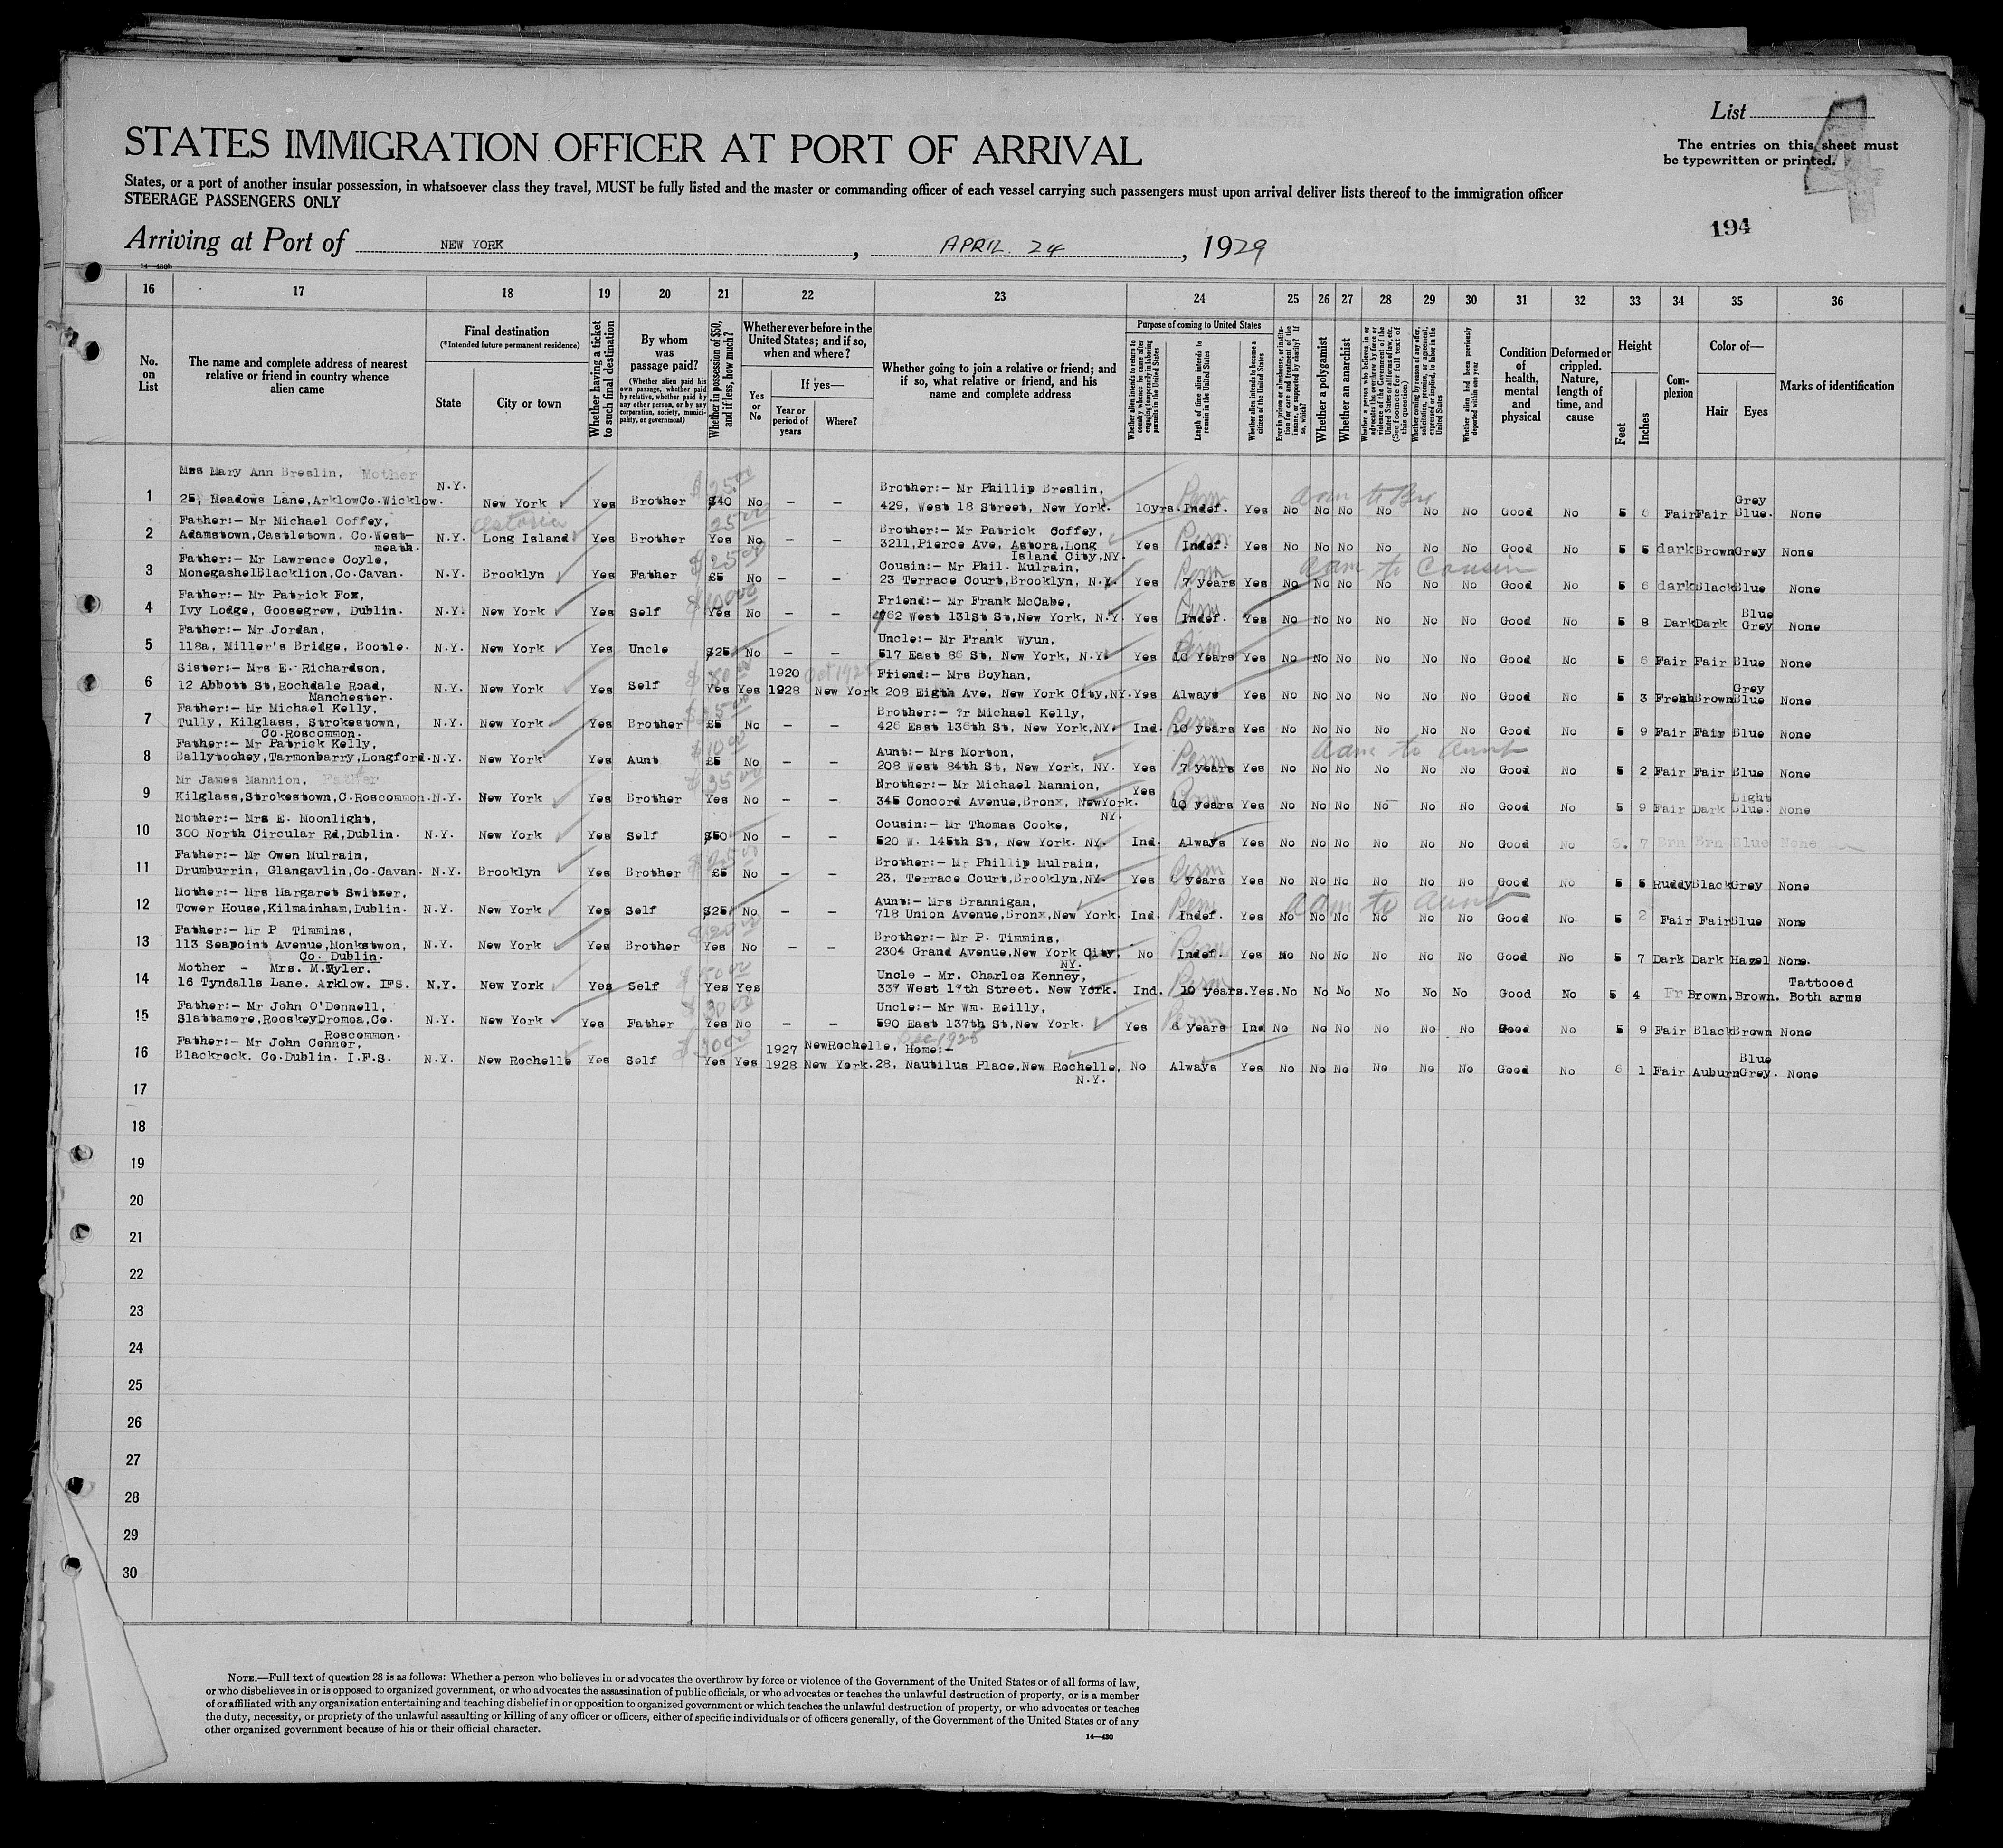 List
4
The entries on this sheet must
be typewritten or printed.
STATES IMMIGRATION OFFICER AT PORT OF ARRIVAL
States, or a port of another insular possession, in whatsoever class they travel, MUST be fully listed and the master or commanding officer of each vessel carrying such passengers must upon arrival deliver lists thereof to the immigration officer
STEERAGE PASSENGERS ONLY
194
Arriving at Port of NEW YORK, APRIL 24, 1929
14—430b
16 17 18 19 20 21 22 23 24 25 26 27 28 29 30 31 32 33 34 35 36
No. on List
The name and complete address of nearest relative or friend in country whence alien came
Final destination
(*Intended future permanent residence)
State
City or town
Whether having a ticket to such final destination
By whom was passage paid?
(Whether alien paid his own passage, whether paid by relative, whether paid by any other person, or by any corporation, society, municipality, or government)
Whether in possession of $50, and if less, how much?
Whether ever before in the United States; and if so, when and where?
Yes or No
If yes—
Year or period of years
Where?
Whether going to join a relative or friend; and if so, what relative or friend, and his name and complete address
Purpose of coming to United States
Whether alien intends to return to country whence he came after engaging temporarily in laboring pursuits in the United States
Length of time alien intends to remain in the United States
Whether alien intends to become a citizen of the United States
Ever in prison or almshouse, or institution for care and treatment of the insane, or supported by charity? If so, which?
Whether a polygamist
Whether an anarchist
Whether a person who believes in or advocates the overthrow by force or violence of the Government of the United States or all forms of law, etc. (See footnote for full text of this question)
Whether coming by reason of any offer, solicitation, promise, or agreement, expressed or implied, to labor in the United States
Whether alien had been previously deported within one year
Condition of health, mental and physical
Deformed or crippled. Nature, length of time, and cause
Height
Feet
Inches
Complexion
Color of—
Hair
Eyes
Marks of identification
1 Mrs Mary Ann Breslin, Mother
25, Meadows Lane,ArklowCo.Wicklow. N.Y. New York Yes Brother $40 $25.00 No — — Brother:- Mr Phillip Breslin,
429, West 18 Street, New York. 10yrs. Indef. Perm Yes No No No No No No Good No 5 6 Fair Fair Grey Blue. None
adm to Bro
2 Father:- Mr Michael Coffey,
Adamstown,Castletown, Co.West-
meath. N.Y. Astoria Long Island Yes Brother Yes 25.00 No — — Brother:- Mr Patrick Coffey,
3211,Pierce Ave, Astora,Long
Island City,NY. Yes Indef. Yes No No No No No No Good No 5 5 dark Brown Grey None
3 Father:- Mr Lawrence Coyle,
MonegashelBlacklion,Co.Cavan. N.Y. Brooklyn Yes Father £5 $25.00 No — — Cousin:- Mr Phil. Mulrain,
23 Terrace Court,Brooklyn, N.Y. Yes 7 years Perm Yes No No No No No No Good No 5 6 dark Black Blue None
adm to Cousin
4 Father:- Mr Patrick Fox,
Ivy Lodge, Goosegrew, Dublin. N.Y. New York Yes Self Yes No Friend:- Mr Frank McCabe,
462 West 131St St,New York, N.Y. Yes Indef. Perm Yes No No No No No No Good No 5 8 Dark Dark Blue Grey None
5 Father:- Mr Jordan,
118a, Miller's Bridge, Bootle. N.Y. New York Yes Uncle $25 No — — Uncle:- Mr Frank Wyun,
517 East 86 St, New York, N.Y. Yes 10 Years Perm Yes No No No No No No Good No 5 6 Fair Fair Blue None
6 Sister:- Mrs E. Richardson,
12 Abbott St,Rochdale Road,
Manchester. N.Y. New York Yes Self Yes Yes 1920 1928 New York Friend:- Mrs Boyhan,
208 Eigth Ave, New York City,NY. Yes Always Yes No No No No No No Good No 5 3 Fresh Brown Grey Blue None
7 Father:- Mr Michael Kelly,
Tully, Kilglass, Strokestown,
Co.Roscommon. N.Y. New York Yes Brother £5 No — — Brother:- Mr Michael Kelly,
426 East 136th St, New York,NY. Ind. 10 years Perm Yes No No No No No No Good No 5 9 Fair Fair Blue None
8 Father:- Mr Patrick Kelly,
Ballytoohey,Tarmonbarry,Longford. N.Y. New York Yes Aunt £5 $10.00 No — — Aunt:- Mrs Morton,
208 West 84th St, New York, NY. Yes 7 years Perm Yes No No No No No No Good No 5 2 Fair Fair Blue None
adm to aunt
9 Mr James Mannion, Father
Kilglass,Strokestown,C.Roscommon. N.Y. New York Yes Brother Yes $35.00 No — — Brother:- Mr Michael Mannion,
345 Concord Avenue,Bronx, NewYork.
NY. Yes 10 years Yes No No No No No No Good No 5 9 Fair Dark Light Blue. None
10 Mother:- Mrs E. Moonlight,
300 North Circular Rd,Dublin. N.Y. New York Yes Self $50 No — — Cousin:- Mr Thomas Cooke,
520 W. 145th St, New York. NY. Ind. Always Yes No No No No No No Good No 5. 7 Brn Brn Blue None
11 Father:- Mr Owen Mulrain,
Drumburrin, Glangavlin,Co.Cavan. N.Y. Brooklyn Yes Brother £5 $25.00 No — — Brother:- Mr Phillip Mulrain,
23, Terrace Court,Brooklyn,NY. Yes years Perm Yes No No No No No No Good No 5 5 Ruddy Black Grey None
12 Mother:- Mrs Margaret Switzer,
Tower House,Kilmainham,Dublin. N.Y. New York Yes Self $25 No — — Aunt:- Mrs Brannigan,
718 Union Avenue,Bronx,New York. Ind. Indef. Perm Yes No No No No No No Good No 5 2 Fair Fair Blue None
adm to aunt
13 Father:- Mr P Timmins,
113 Seapoint Avenue,Monkstwon,
Co. Dublin. N.Y. New York Yes Brother Yes $20.00 No — — Brother:- Mr P. Timmins,
2304 Grand Avenue,New York City,
NY. No Indef. Perm Yes No No No No No No Good No 5 7 Dark Dark Hazel None.
14 Mother - Mrs. M.Tyler.
16 Tyndalls Lane. Arklow. IFS. N.Y. New York Yes Self Yes Yes Uncle - Mr. Charles Kenney,
337 West 17th Street. New York. Ind. 10 years. Perm Yes. No No No No No No Good No 5 4 Fr Brown. Brown. Tattooed
Both arms
15 Father:- Mr John O'Donnell,
Slattamore,RooskeyDromoa,Co.
Roscommon. N.Y. New York Yes Father Yes $30.00 No — — Uncle:- Mr Wm. Reilly,
590 East 137th St,New York. Yes years Perm Ind No No No No No No Good No 5 9 Fair Black Brown None
16 Father:- Mr John Connor,
Blackrock. Co.Dublin. I.F.S. N.Y. New Rochelle Yes Self Yes Yes 1927 NewRochelle,
1928 New York. Dec 1928 Home:-
28, Nautilus Place,New Rochelle,
N.Y. No Always Yes No No No No No No Good No 6 1 Fair Auburn Blue Grey. None
17
18
19
20
21
22
23
24
25
26
27
28
29
30
NOTE.—Full text of question 28 is as follows: Whether a person who believes in or advocates the overthrow by force or violence of the Government of the United States or of all forms of law,
or who disbelieves in or is opposed to organized government, or who advocates the assassination of public officials, or who advocates or teaches the unlawful destruction of property, or is a member
of or affiliated with any organization entertaining and teaching disbelief in or opposition to organized government or which teaches the unlawful destruction of property, or who advocates or teaches
the duty, necessity, or propriety of the unlawful assaulting or killing of any officer or officers, either of specific individuals or of officers generally, of the Government of the United States or of any
other organized government because of his or their official character.
14—430